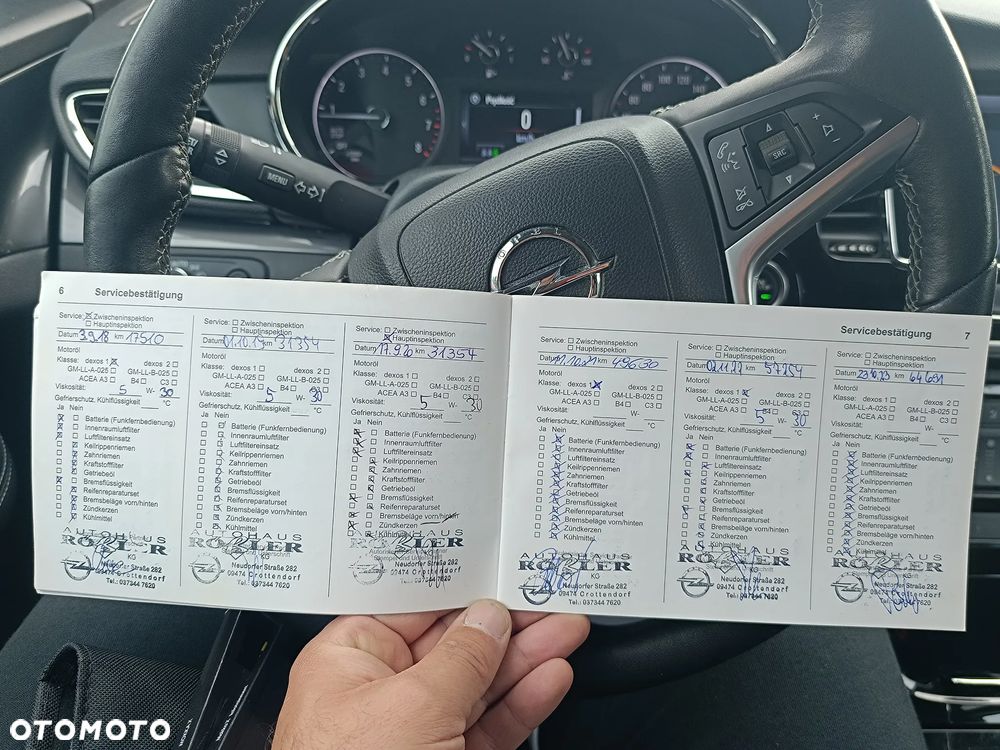 8
MENU
Prędkość
0
km/h
OPEL
SRC
6 Servicebestätigung
Service: Zwischeninspektion
Hauptinspektion
Datum 3.9.18 km 17510
Motoröl
Klasse: dexos 1 dexos 2
GM-LL-A-025 GM-LL-B-025
ACEA A3 B4 C3
Viskosität: 5 W- 30
Gefrierschutz, Kühlflüssigkeit °C
Ja Nein
Batterie (Funkfernbedienung)
Innenraumluftfilter
Luftfiltereinsatz
Keilrippenriemen
Zahnriemen
Kraftstofffilter
Getriebeöl
Bremsflüssigkeit
Reifenreparaturset
Bremsbeläge vorn/hinten
Zündkerzen
Kühlmittel
AUTOHAUS
RÖßLER
KG
Neudorfer Straße 282
09474 Crottendorf
Tel.: 037344 7620
Service: Zwischeninspektion
Hauptinspektion
Datum 01.10.19 km 31354
Motoröl
Klasse: dexos 1 dexos 2
GM-LL-A-025 GM-LL-B-025
ACEA A3 B4 C3
Viskosität: 5 W- 30
Gefrierschutz, Kühlflüssigkeit °C
Ja Nein
Batterie (Funkfernbedienung)
Innenraumluftfilter
Luftfiltereinsatz
Keilrippenriemen
Zahnriemen
Kraftstofffilter
Getriebeöl
Bremsflüssigkeit
Reifenreparaturset
Bremsbeläge vorn/hinten
Zündkerzen
Kühlmittel
AUTOHAUS
RÖßLER
KG
Neudorfer Straße 282
09474 Crottendorf
Tel.: 037344 7620
Service: Zwischeninspektion
Hauptinspektion
Datum 17.9.20 km 31354
Motoröl
Klasse: dexos 1 dexos 2
GM-LL-A-025 GM-LL-B-025
ACEA A3 B4 C3
Viskosität: 5 W- 30
Gefrierschutz, Kühlflüssigkeit °C
Ja Nein
Batterie (Funkfernbedienung)
Innenraumluftfilter
Luftfiltereinsatz
Keilrippenriemen
Zahnriemen
Kraftstofffilter
Getriebeöl
Bremsflüssigkeit
Reifenreparaturset
Bremsbeläge vorn/hinten
Zündkerzen
Kühlmittel
AUTOHAUS
RÖßLER
KG
Neudorfer Straße 282
09474 Crottendorf
Tel.: 037344 7620
Servicebestätigung 7
Service: Zwischeninspektion
Hauptinspektion
Datum km 49630
Motoröl
Klasse: dexos 1 dexos 2
GM-LL-A-025 GM-LL-B-025
ACEA A3 B4 C3
Viskosität: W-
Gefrierschutz, Kühlflüssigkeit °C
Ja Nein
Batterie (Funkfernbedienung)
Innenraumluftfilter
Luftfiltereinsatz
Keilrippenriemen
Zahnriemen
Kraftstofffilter
Getriebeöl
Bremsflüssigkeit
Reifenreparaturset
Bremsbeläge vorn/hinten
Zündkerzen
Kühlmittel
AUTOHAUS
RÖßLER
KG
Neudorfer Straße 282
09474 Crottendorf
Tel.: 037344 7620
Service: Zwischeninspektion
Hauptinspektion
Datum 02.11.22 km 57254
Motoröl
Klasse: dexos 1 dexos 2
GM-LL-A-025 GM-LL-B-025
ACEA A3 B4 C3
Viskosität: 5 W- 30
Gefrierschutz, Kühlflüssigkeit °C
Ja Nein
Batterie (Funkfernbedienung)
Innenraumluftfilter
Luftfiltereinsatz
Keilrippenriemen
Zahnriemen
Kraftstofffilter
Getriebeöl
Bremsflüssigkeit
Reifenreparaturset
Bremsbeläge vorn/hinten
Zündkerzen
Kühlmittel
AUTOHAUS
RÖßLER
KG
Neudorfer Straße 282
09474 Crottendorf
Tel.: 037344 7620
Service: Zwischeninspektion
Hauptinspektion
Datum 23.10.23 km 64691
Motoröl
Klasse: dexos 1 dexos 2
GM-LL-A-025 GM-LL-B-025
ACEA A3 B4 C3
Viskosität: W-
Gefrierschutz, Kühlflüssigkeit °C
Ja Nein
Batterie (Funkfernbedienung)
Innenraumluftfilter
Luftfiltereinsatz
Keilrippenriemen
Zahnriemen
Kraftstofffilter
Getriebeöl
Bremsflüssigkeit
Reifenreparaturset
Bremsbeläge vorn/hinten
Zündkerzen
Kühlmittel
AUTOHAUS
RÖßLER
KG
Neudorfer Straße 282
09474 Crottendorf
Tel.: 037344 7620
OTOMOTO